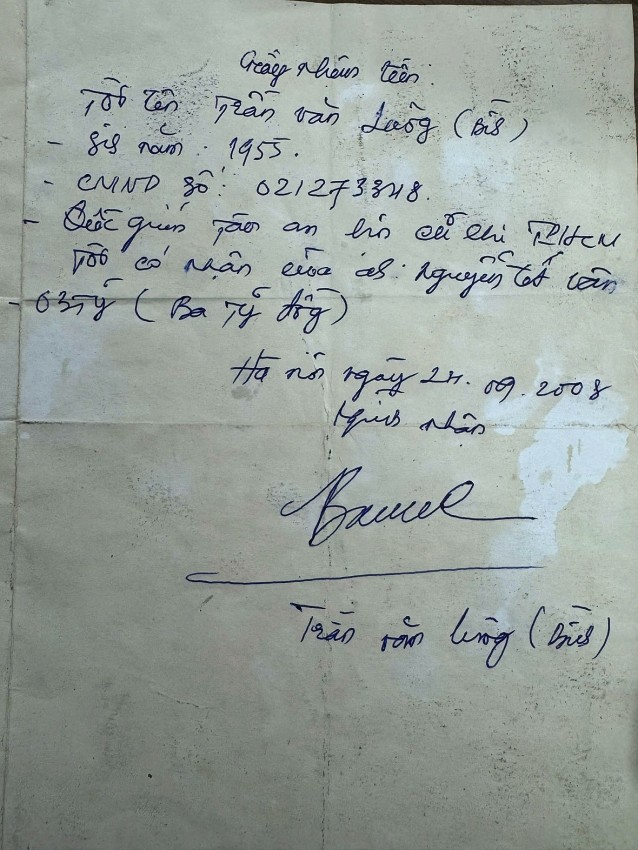 Giấy nhận tiền
Tôi tên Trần văn Lường (Bis)
- Sis năm : 1955.
- CMND số : 021273348.
- Quốc quán Tân an hôi củ chi TPHCM
Tôi có nhận của a : Nguyễn văn
- 03Tỷ (Ba Tỷ đồng)
Hà nôi ngày 24. 09. 2008
Người nhận
Trần văn Lường (Bis)